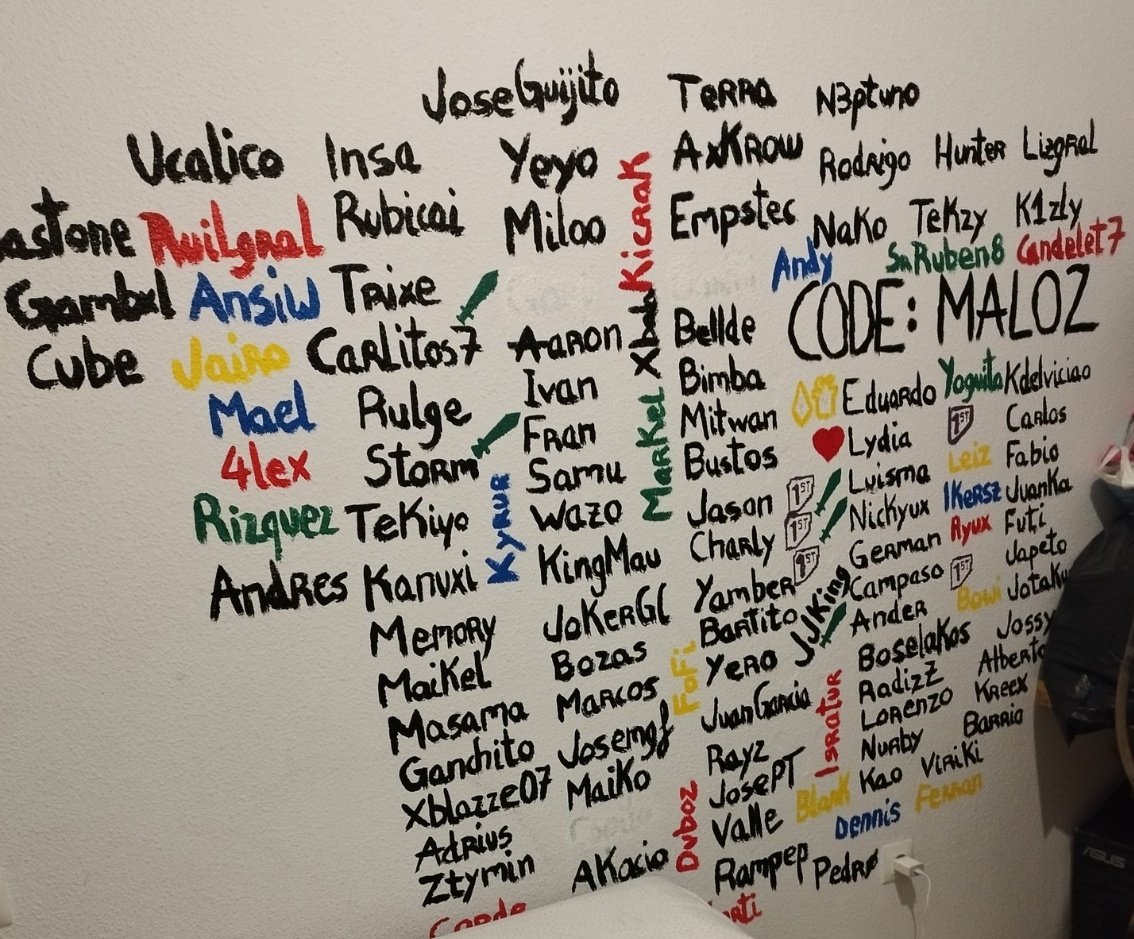 JoseGuijito TERRA N3ptuno
Ucalico Insa Yeyo AxKROW Rodrigo Hunter Lizgral
astone Ruilgral Rubicai Miloo KicRaK Empstec Nako TeKzy K1zly
Andy SnRuben8 Candelet7
Gambxl Ansiw Trixe CODE: MALOZ
Cube Jairo Carlitos7 Aaron Bellde
Mael Rulge Ivan Bimba Eduardo Yoguita Kdelviciao
4lex Storm Fran Markel Mitwan Lydia 1ST Carlos
Samu Bustos Luisma Leiz Fabio
Rizquez TeKiyo Kyrur Wazo Jason 1ST Nickyux IKersz JuanKa
Charly 1ST German Ryux Futi
Andres Kanuxi KingMau Yamber 1ST Campaso 1ST Japeto
Memory JoKerGL Bartito JJKing Ander Bowi JotaKu
Maikel Bozas FoFi Yero Boselakos Jossy
Masama Marcos JuanGarcia Isratur RadizZ Alberto
Ganchito Josemgf Rayz Lorenzo Kreex
Xblazze07 Maiko JosePT Nurby Barrio
Adrius Duboz Valle Blank Kao Viriki
Dennis Ferran
Ztymin AKacio Rampep Pedro
ASUS